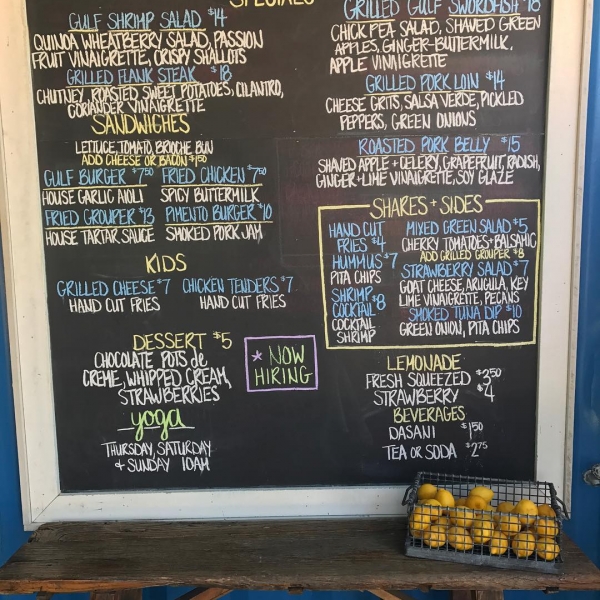 SPECIALS
GULF SHRIMP SALAD $14
QUINOA WHEATBERRY SALAD, PASSION
FRUIT VINAIGRETTE, CRISPY SHALLOTS
GRILLED FLANK STEAK $18
CHUTNEY, ROASTED SWEET POTATOES, CILANTRO,
CORIANDER VINAIGRETTE
SANDWICHES
LETTUCE, TOMATO, BRIOCHE BUN
ADD CHEESE OR BACON $1.50
GULF BURGER $7.50
HOUSE GARLIC AIOLI
FRIED CHICKEN $7.50
SPICY BUTTERMILK
FRIED GROUPER $13
HOUSE TARTAR SAUCE
PIMENTO BURGER $10
SMOKED PORK JAM
KIDS
GRILLED CHEESE $7
HAND CUT FRIES
CHICKEN TENDERS $7
HAND CUT FRIES
DESSERT $5
CHOCOLATE POTS de
CREME, WHIPPED CREAM,
STRAWBERRIES
yoga
THURSDAY, SATURDAY
+ SUNDAY 10AM
* NOW
HIRING
GRILLED GULF SWORDFISH $18
CHICK PEA SALAD, SHAVED GREEN
APPLES, GINGER-BUTTERMILK,
APPLE VINNIGRETTE
GRILLED PORK LOIN $14
CHEESE GRITS, SALSA VERDE, PICKLED
PEPPERS, GREEN ONIONS
ROASTED PORK BELLY $15
SHAVED APPLE + CELERY, GRAPEFRUIT, RADISH,
GINGER + LIME VINAIGRETTE, SOY GLAZE
SHARES + SIDES
HAND CUT
FRIES $4
HUMMUS $7
PITA CHIPS
SHRIMP
COCKTAIL $8
COCKTAIL
SHRIMP
MIXED GREEN SALAD $5
CHERRY TOMATOES + BALSAMIC
ADD GRILLED GROUPER $8
STRAWBERRY SALAD $7
GOAT CHEESE, ARUGULA, KEY
LIME VINAIGRETTE, PECANS
SMOKED TUNA DIP $10
GREEN ONION, PITA CHIPS
LEMONADE
FRESH SQUEEZED $2.50
STRAWBERRY $4
BEVERAGES
DASANI $1.50
TEA OR SODA $2.75